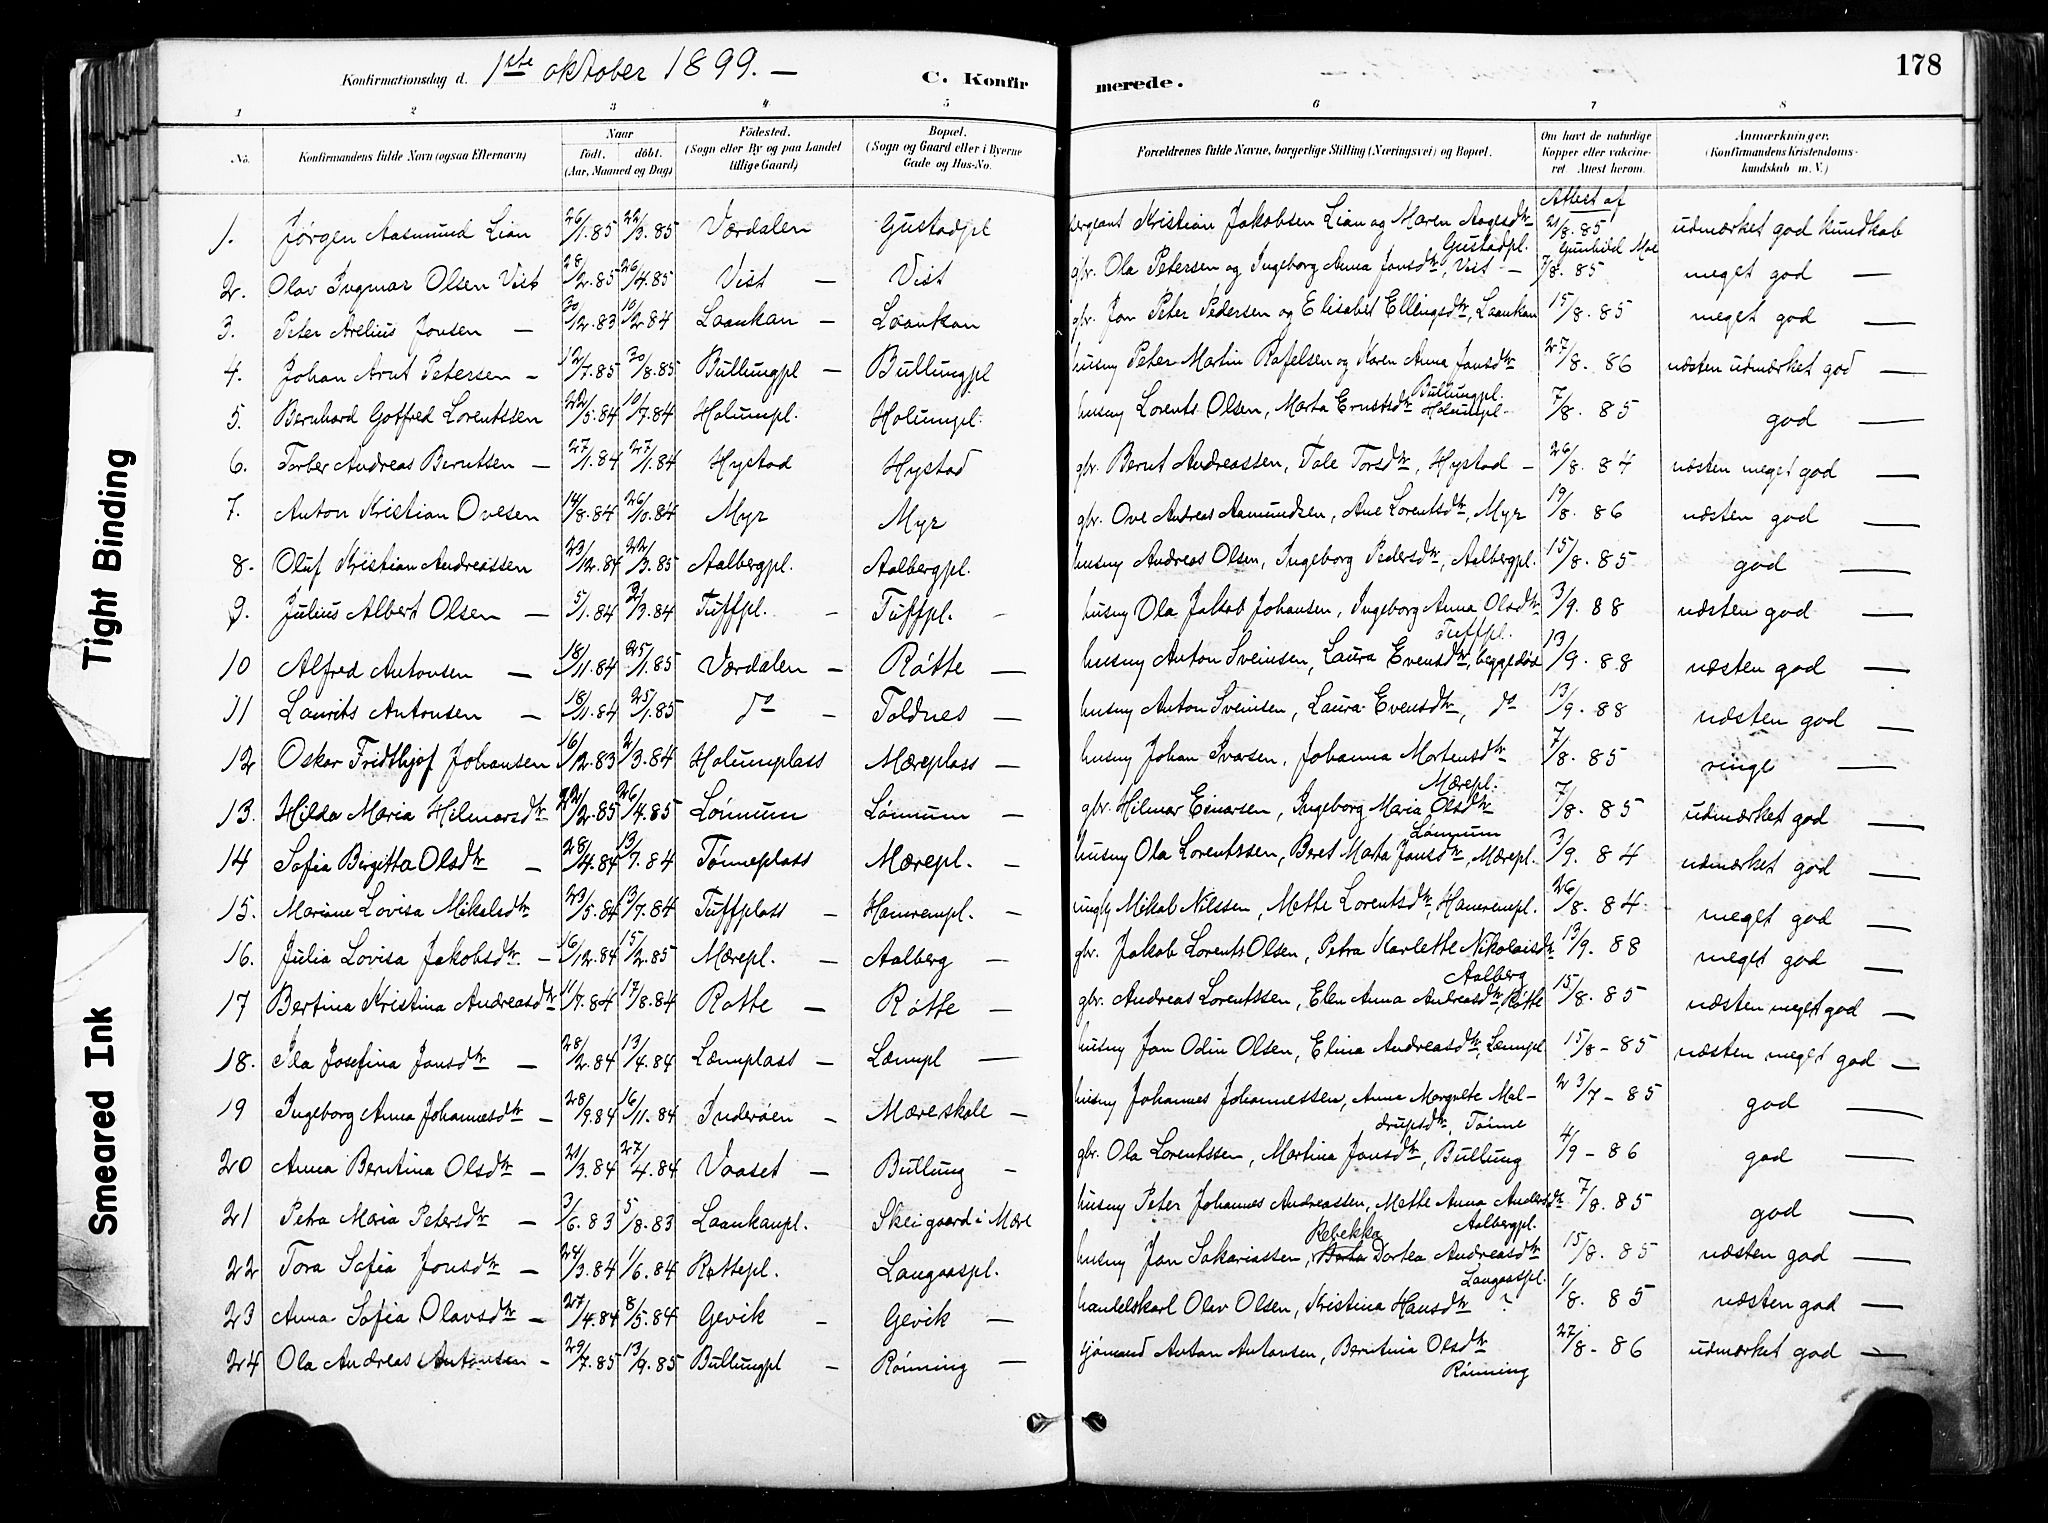 178
Konfirmationsdag d. 1ste oktober 1899. —
C. Konfirmerede.
1 2 3 4 5 6 7 8
No. Konfirmandens fulde Navn (ogsaa Efternavn) Naar Födt, döbt. (Aar, Maaned og Dag) Födested. (Sogn eller By og paa Landet tillige Gaard) Bopæl. (Sogn og Gaard eller i Byerne Gade og Hus-No. Forældrenes fulde Navne, borgerlige Stilling (Næringsvei) og Bopæl. Om havt de naturlige Kopper eller vakcineret Attest herom. Anmærkninger. (Konfirmandens Kristendomskundskab m. V.)
Attest af
1. Jørgen Aasmund Lian 26/1.85 22/3.85 Værdalen Gustadpl sergeant Kristian Jakobsen Lian og Maren Aagesdtr Gustadpl. 21/8.85 Gunhild Moe udmærket god kundskab
2. Olav Ingmar Olsen Vist 28/2.85 26/4.85 Vist — Vist gbr. Ola Petersen og Ingeborg Anna Jonsdtr, Vist — 7/8.85 meget god —
3. Peter Arelius Jonsen — 30/12.83 10/2 84 Laankan — Laankan gbr. Jon Peter Pedersen og Elisabet Ellingsdtr, Laankan 15/8.85 meget god —
4. Johan Arnt Petersen — 12/7.85 30/8.85 Bullungpl — Bullungpl husmy Peter Martin Rafelsen og Karen Anna Jonsdtr Bullungpl. 27/8. 86 næsten udmærket god —
5. Bernhard Gotfred Lorentssen 22/5.84 10/7.84 Holumpl. Holumpl. husmy Lorents Olsen, Marta Ernstsdtr Holumpl. 7/8. 85 god —
6. Torber Andreas Berntsen — 27/1.84 27/1.84 Hystad Hystad gbr. Bernt Andreassen, Tale Torsdtr, Hystad — 26/8. 84 næsten meget god —
7. Anton Kristian Ovesen 14/8.84 26/10.84 Myr Myr gbr. Ove Andreas Aamundsen, Ane Lorentsdtr, Myr 19/8. 86 næsten god —
8. Oluf Kristian Andreassen 23/12.84 22/3.85 Aalbergpl. Aalbergpl. husmy Andreas Olsen, Ingeborg Pedersdtr, Aalbergpl. 15/8.85 god —
9. Julius Albert Olsen — 5/1.84 2/3.84 Tuffpl. — Tuffpl. — husmy Ola Jakob Johansen, Ingeborg Anna Olsdtr Tuffpl. 3/9. 88 næsten god —
10 Alfred Antonsen — 18/11.84 25/1.85 Værdalen — Røtte — husmy Anton Sveinsen, Laura Evensdtr, begge døde 13/9. 88 næsten god —
11 Laurits Antonsen — 18/11.84 25/1.85 do — Toldnes — husmy Anton Sveinsen, Laura Evensdtr, do 13/9. 88 næsten god —
12 Oskar Fridthjof Johansen 16/12.83 2/3.84 Holumplass Mæreplass — husmy Johan Ivarsen, Johanna Mortensdtr Mærepl. 7/8.85 ringe —
13. Hilda Maria Hilmarsdtr 22/2.85 26/4.85 Lønnum Lønnum — gbr. Hilmar Einarsen, Ingeborg Maria Olsdtr Lønnum 7/8. 85 udmærket god —
14 Sofia Birgitta Olsdtr — 28/4.84 13/7.84 Tønneplass Mærepl. — husmy Ola Lorentssen, Beret Marta Jonsdtr, Mærepl. 3/9. 84 udmærket god —
15. Mariane Lovisa Mikalsdtr 23/5.84 13/7.84 Tuffplass — Hamrempl. — Mikal Nilssen, Mette Lorentsdtr, Hamrempl. 26/8. 84 meget god —
16. Julia Lovisa Jakobsdtr. — 16/12.84 15/2.85 Mærepl. — Aalberg — gbr. Jakob Lorents Olsen, Petra Karlette Nikolaisdtr Aalberg 13/9. 88 meget god —
17 Bertina Kristina Andreasdtr 11/7.84 17/8.84 Rotte — Røtte — gbr. Andreas Lorentssen, Elen Anna Andreasdtr, Røtte 15/8. 85 næsten meget god —
18. Ida Josefina Jonsdtr — 28/2.84 13/4.84 Læmplass — Læmpl — husmy Jon Odin Olsen, Elina Andreasdtr, Læmpl 15/8 — 85 næsten meget god —
19 Ingeborg Anna Johannesdtr — 28/9.84 16/11.84 Inderøen — Mæreskole — husmy Johannes Johannessen, Anna Margrete Maldrupsdtr, Tønne 23/7 — 85 god —
20 Anna Berntina Olsdtr — 21/3.84 27/4.84 Vaaset — Bullung — gbr. Ola Lorentssen, Martina Jonsdtr, Bullung 4/9 — 86 god —
21 Petra Maria Petersdtr — 3/6.83 5/8.83 Laankanpl. Skeigaard i Mære husmy Peter Johannes Andreassen, Mette Anna Andersdtr Aalbergpl. 7/8. 85 god —
22 Tora Sofia Jonsdtr — 28/3.84 1/6.84 Røttepl. Langaaspl. husmy Jon Sakariassen, Rebekka Dortea Andreasdtr Langaaspl. 15/8. 85 næsten god —
23 Anna Sofia Olavsdtr — 27/4.84 8/5.84 Gevik — Gevik — handelskarl Olav Olsen, Kristina Hansdtr ? 1/8. 85 næsten god —
24 Ola Andreas Antonsen — 29/7.85 13/9.85 Bullungpl — Rønning — sjømand Anton Antonsen, Berntina Olsdtr Rønning 27/8 — 86 udmærket god —
Tight Binding
Smeared Ink